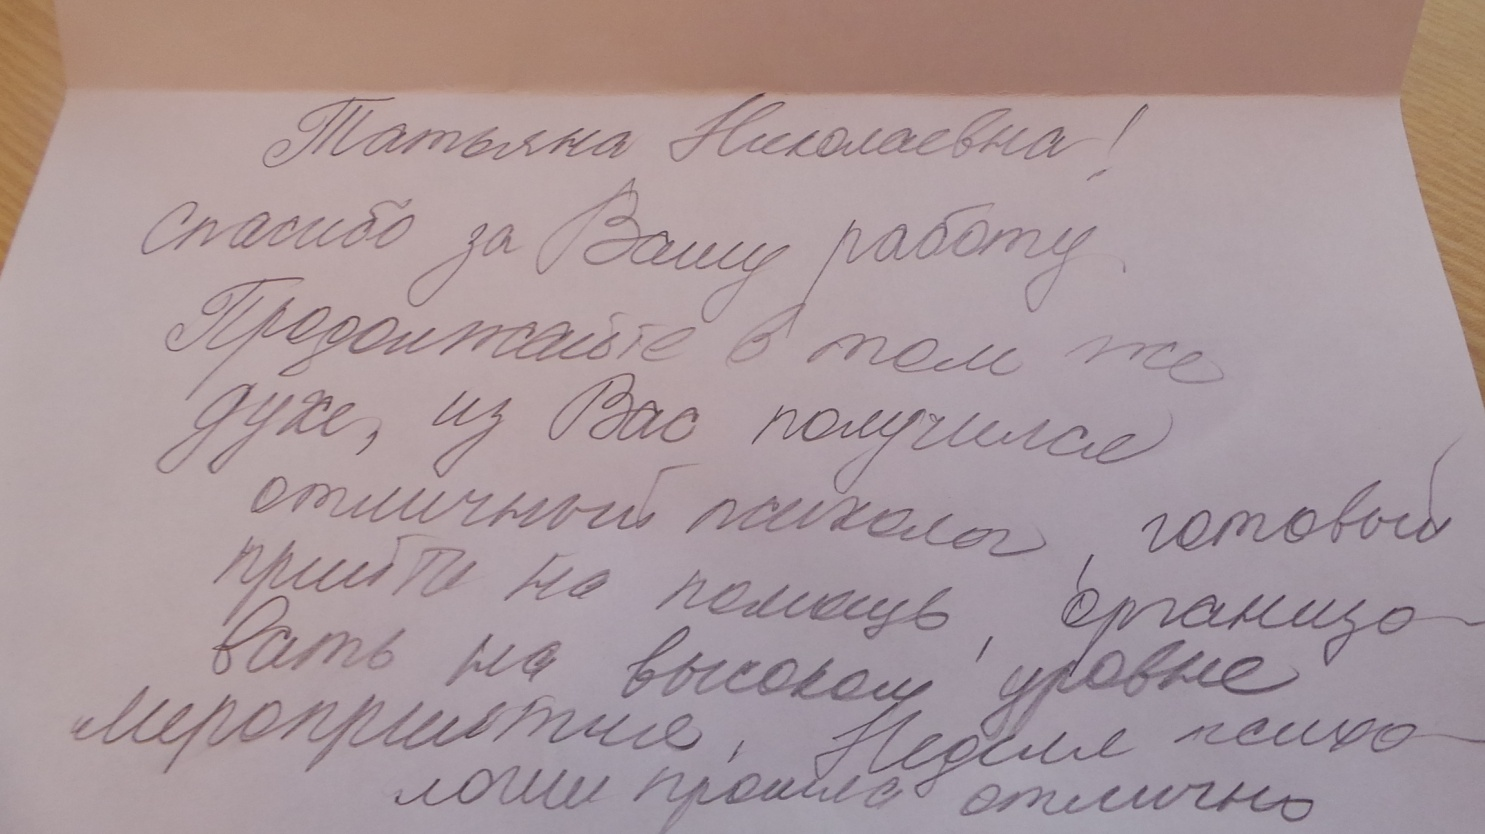 Татьяна Николаевна!
Спасибо за Вашу работу.
Продолжайте в том же
духе, из Вас получился
отличный психолог, готовый
прийти на помощь, организо-
вать на высоком уровне
мероприятие. Неделя психо-
логии прошла отлично